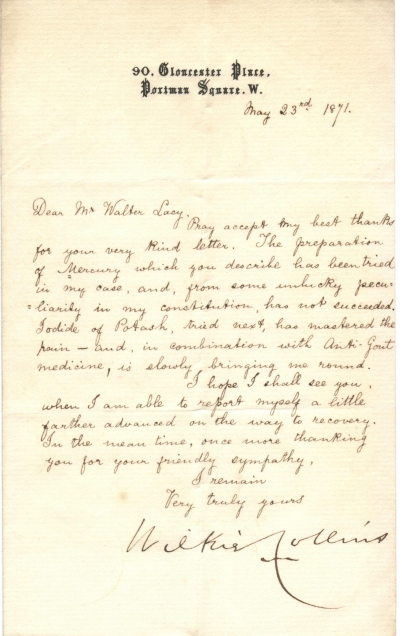 90, Gloucester Place,
Portman Square. W.
May 23rd 1871.
Dear Mr Walter Lacy,
Pray accept my best thanks
for your very kind letter. The preparation
of Mercury which you describe has been tried
in my case, and, from some unlucky pecu-
=liarity in my constitution, has not succeeded.
Iodide of Potash, tried next, has mastered the
pain — and, in combination with Anti-Gout
medicine, is slowly bringing me round.
I hope I shall see you,
when I am able to report myself a little
farther advanced on the way to recovery.
In the mean time, once more thanking
you for your friendly sympathy,
I remain
Very truly yours
Wilkie Collins